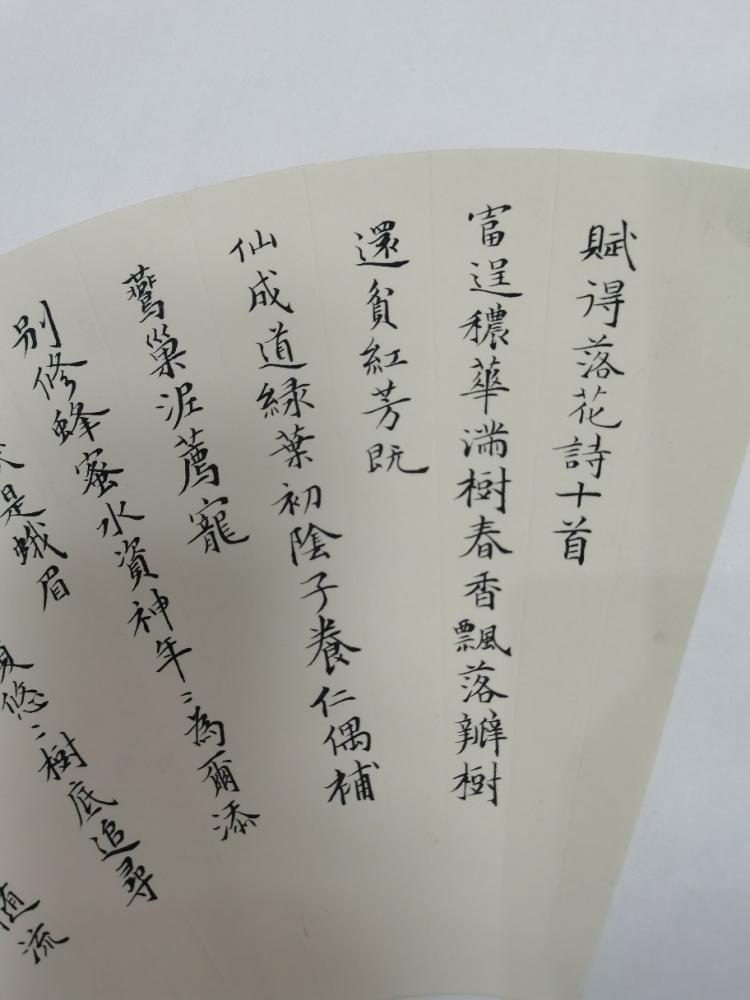 賦得落花詩十首
富逞穠華滿樹春香飄落瓣樹
還貧紅芳既
仙成道綠葉初陰子養仁偶補
鷰巢泥薦寵
別修蜂蜜水資神年〻為爾添
是蛾眉
悠〻樹底追尋
隨流